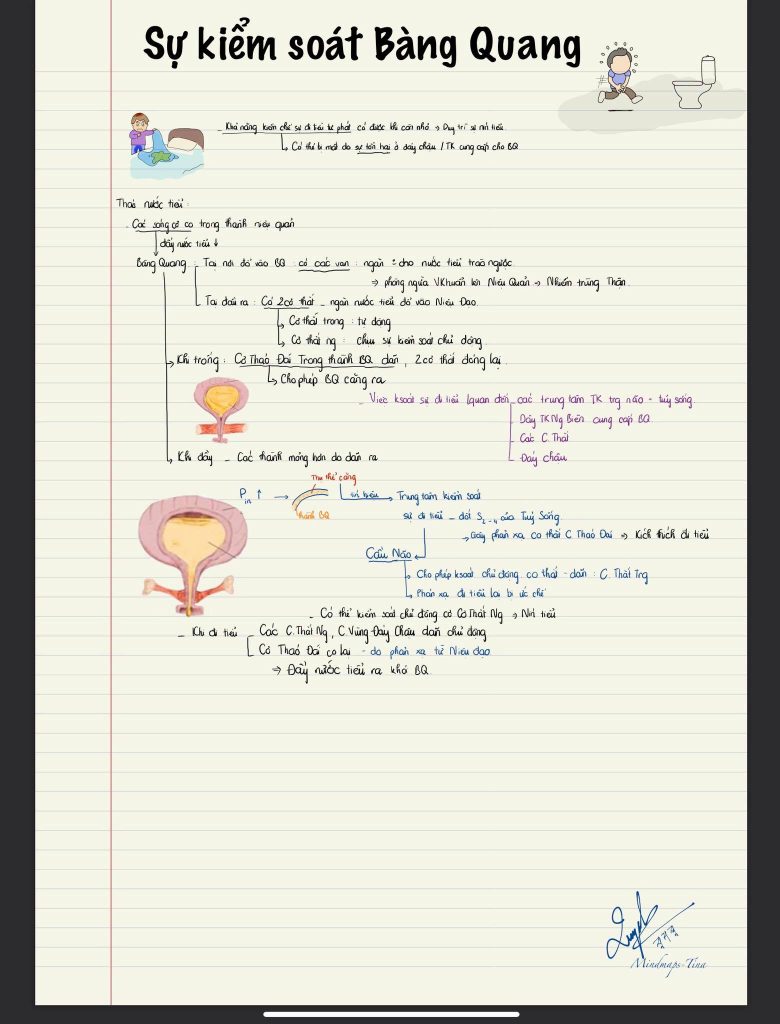 Sự kiểm soát Bàng Quang
_ Khả năng kiềm chế sự đi tiểu tự phát có được khi còn nhỏ → Duy trì sự nín tiểu.
Có thể bị mất do sự tổn hại ở đáy chậu / TK cung cấp cho BQ
Thoát nước tiểu :
. Các sóng cơ co trong thành niệu quản
đẩy nước tiểu ↓
Bàng Quang : Tại nơi đổ vào BQ : có các van : ngăn : cho nước tiểu trào ngược.
⇒ phòng ngừa VKhuẩn lên Niệu Quản → Nhiễm trùng Thận.
Tại đầu ra : Có 2 cơ thắt _ ngăn nước tiểu đổ vào Niệu Đạo.
Cơ thắt trong : tự động
Cơ thắt ng : chịu sự kiểm soát chủ động.
Khi trống : Cơ Tháo Đái Trong thành BQ dãn , 2 cơ thắt đóng lại.
Cho phép BQ căng ra
_ Việc ksoát sự đi tiểu lquan đến _ các trung tâm TK trg não - tuỷ sống.
Dây TK Ng Biên cung cấp BQ.
Các C. Thắt
Đáy chậu
Khi đầy _ Các thành mỏng hơn do dãn ra
Thụ thể căng
Pin ↑ →
tín hiệu
Trung tâm kiểm soát
thành BQ
sự đi tiểu _ đốt S2-4 của Tuỷ Sống.
Gây phản xạ co thắt C. Tháo Đái → Kích thích đi tiểu
Cầu Não
Cho phép ksoát chủ động co thắt - dãn : C. Thắt Trg
Phản xạ đi tiểu lại bị ức chế
_ Có thể kiểm soát chủ động cơ Cơ Thắt Ng → Nín tiểu
_ Khi đi tiểu _ Các C. Thắt Ng , C. Vùng Đáy Chậu dãn chủ động
Cơ Tháo Đái co lại - do phản xạ từ Niệu đạo
⇒ Đẩy nước tiểu ra khỏi BQ.
Mindmaps-Tina